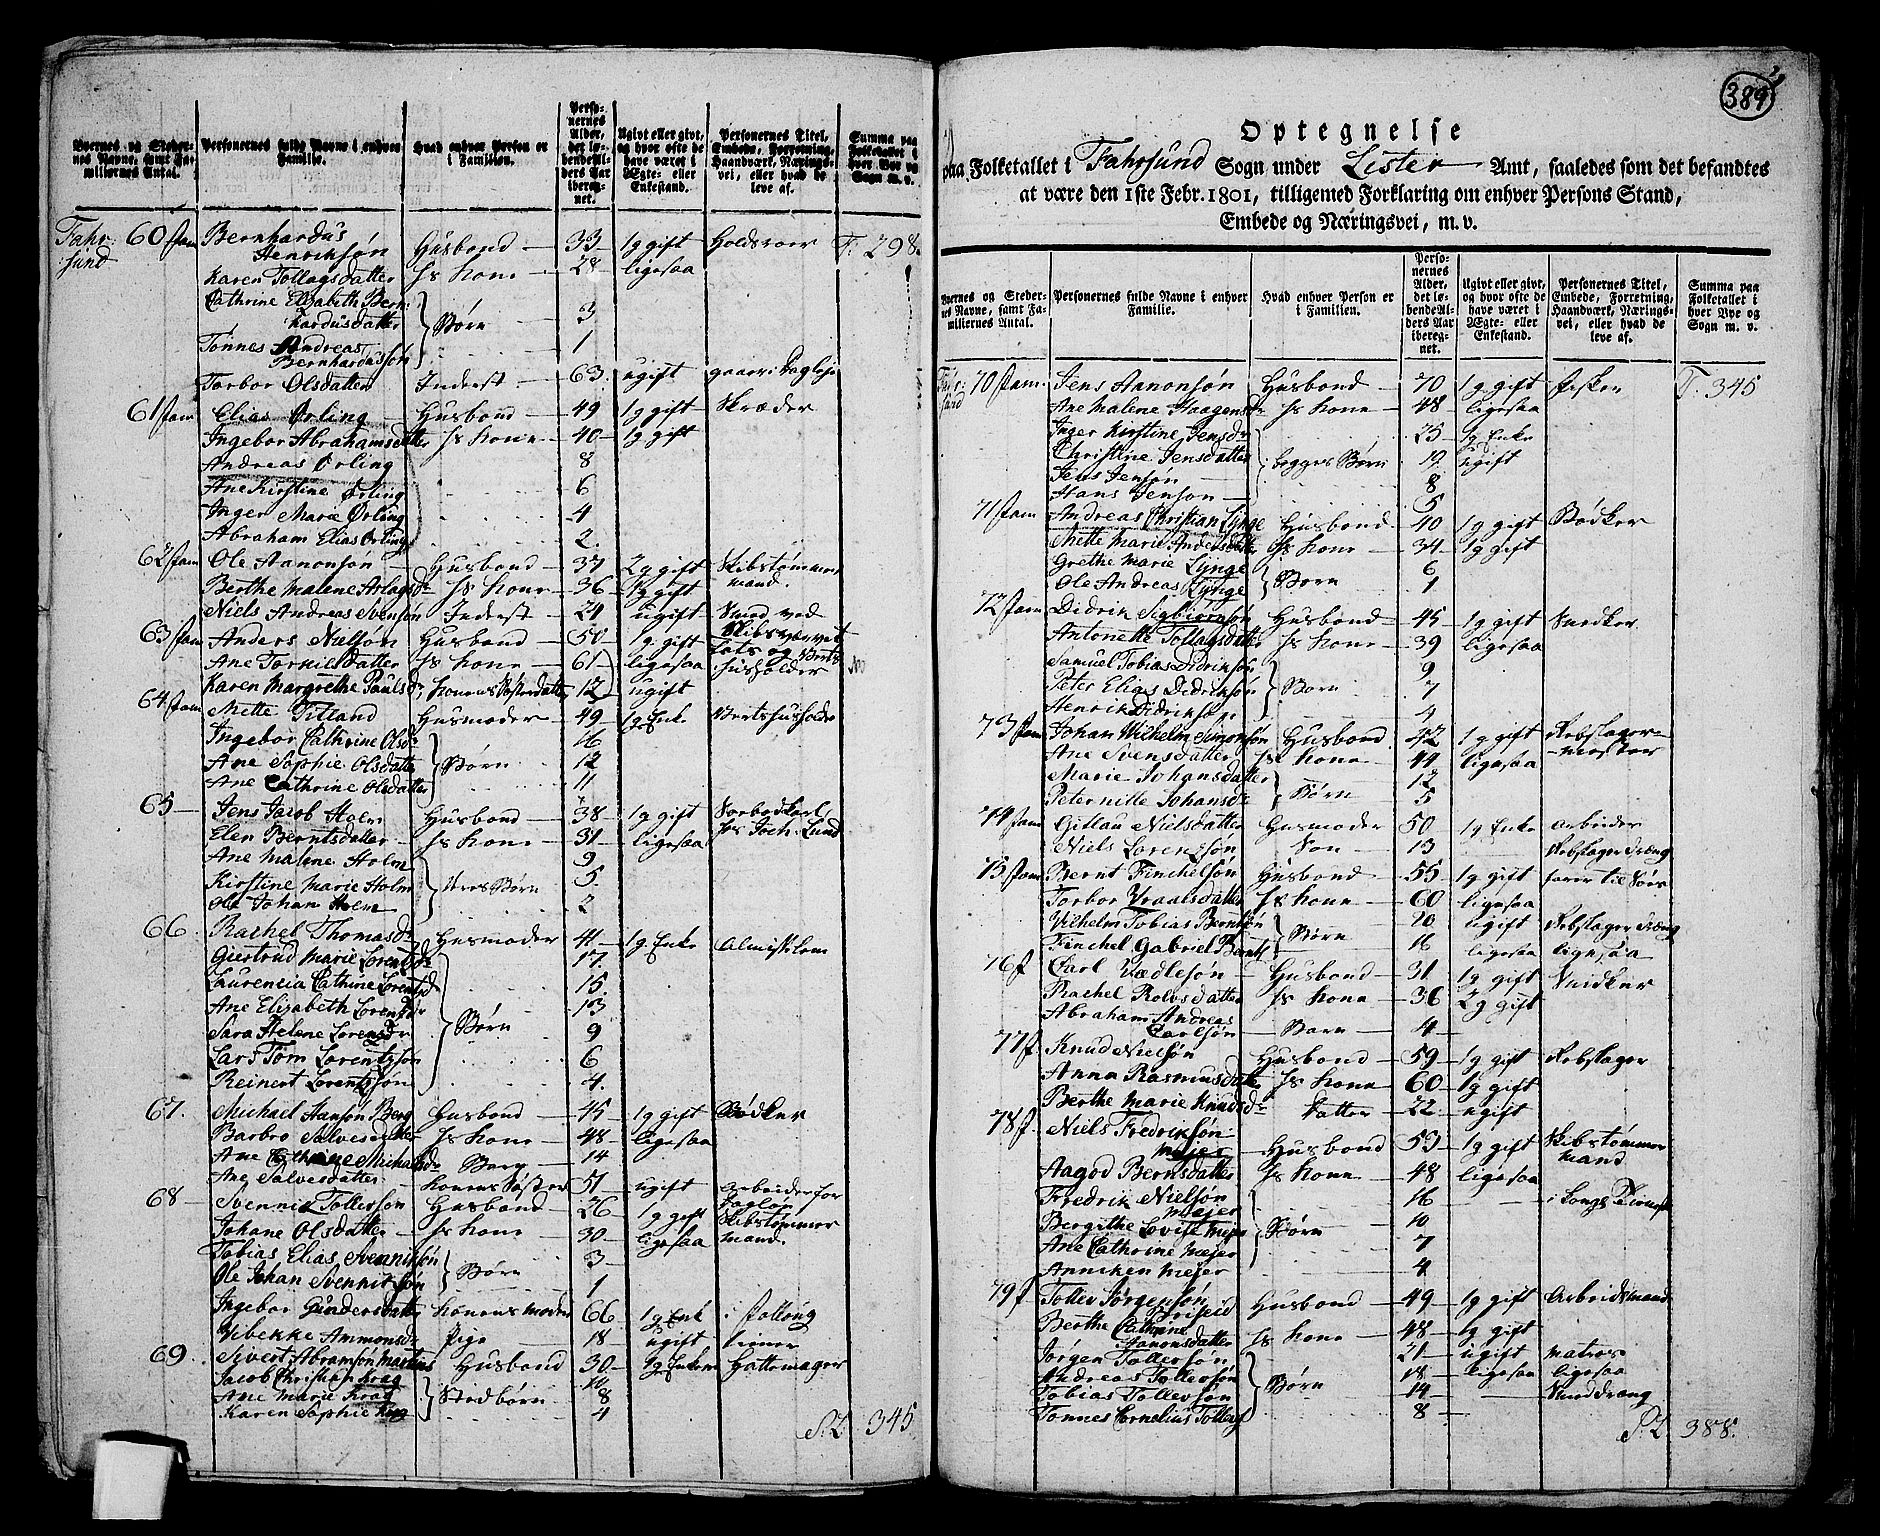 Byernes og Steder-
nes Navne, samt Fa-
miliernes Antal.
Personernes fulde Navne i enhver
Familie.
Hvad enhver Person er
i Familien.
Perso-
nernes
Alder,
det lø-
bende Al-
ders Aar
iberegnet.
Ugivt eller givt,
og hvor ofte de
have været i
Ægte- eller
Enkestand.
Personernes Titel,
Embede, Forretning,
Haandværk, Nærings-
vei, eller hvad de
leve af.
Summa paa
Folketallet i
hver Bye og
Sogn m. v.
Fahr:
sund
60 fam Bernhardus
Henriksøn Husbond 33 1 g gift T: 298.
Karen Tollagsdatter hs kone 28 ligesaa
Cathrine Elizabeth Bern:
hardusdatter Børn 3
Tønnes Andreas
Bernhardussøn 1
Torbor Olsdatter Inderst 63 ugift
61 fam Elias Ørling Husbond 49 1 g gift Skræder
Ingebor Abrahamsdatter hs kone 40 1 g gift
Andreas Ørling 8
Ane Kirstine Ørling 6
Inger Marie Ørling 4
Abraham Elias Ørling 2
62 fam Ole Aanonsøn Husbond 37 2 g gift Skibstømmer
mand.
Berthe Malene hs kone 36 1 g gift
Niels Andreas Svensøn Inderst 21 ugift
63 fam Anders Nielsøn Husbond 50 1 g gift
Ane Torkilsdatter hs kone 61 ligesaa
Karen Margrethe Paulsdr konens Søsterdatter 12 ugift
64 fam Mette Titland Husmoder 49 1 g Enke
Ingebor Cathrine Olsdr 16
Ane Sophie Olsdatter Børn 12
Ane Cathrine Olsdatter 11
65 Jens Jacob Holm Husbond 38 1 g gift
Elen Berntsdatter hs kone 31 ligesaa
Ane Malene Holm 9
Kirstine Marie Holm Børn 5
Ole Johan Holm 2
66 Rachel Thomasdr Husmoder 41 1 g Enke Almislem
Giertrud Marie Lorentzdr 17
Laurencia Cathrine Lorentzd 15
Ane Elizabeth Lorentzdr 13
Sara Helene Lorensdr Børn 9
Lars Tørn Lorentzsøn 6
Reinert Lorentzsøn 4
67. Michael Hansøn Berg Husbond 45 1 g gift Bødker
Barbro Salvesdatter hs kone 48 ligesaa
Ane Cathrine Michalsdr Barn 14
Ane Salvesdatter konens Søster 51 ugift
68 Svennik Tollefsøn Husbond 26 1 g gift Skibstømmer
mand.
Johane Olsdatter hs kone 30 ligesaa
Tobias Elias Svenniksøn Børn 3
Ole Johan Svenniksøn 1
Ingebor Gundersdatter konens moder 66 1 g Enk
Vibekke Ammonsdr Pige 18 ugift tiener
69. Sivert Abramsøn Husbond 30 Hattemager
Jacob Christian Krag 10
Ane Marie Krag Stedbørn 8
Karen Sophie Krag 4
345
389
Optegnelse
paa Folketallet i Fahrsund Sogn under Lister Amt, saaledes som det befandtes
at være den 1ste Febr. 1801, tilligemed Forklaring om enhver Persons Stand,
Embede og Næringsvei, m. v.
Byernes og Steder-
nes Navne, samt Fa-
miliernes Antal.
Personernes fulde Navne i enhver
Familie.
Hvad enhver Person er
i Familien.
Perso-
nernes
Alder,
det lø-
bende Al-
ders Aar
iberegnet.
Ugivt eller givt,
og hvor ofte de
have været i
Ægte- eller
Enkestand.
Personernes Titel,
Embede, Forretning,
Haandværk, Nærings-
vei, eller hvad de
leve af.
Summa paa
Folketallet i
hver Bye og
Sogn m. v.
70 fam. Jens Aanonsøn Husbond 70 1 g gift Fisker T. 345
Ane Malene Haagensdr hs kone 48 ligesaa
Inger Kirstine Jensdr 25 1 g Enke
Christine Jensdatter begges Børn 19 ugift
Jens Jensøn 8
Hans Jensøn 5
71 fam Andreas Christian Lynge Husbond 40 1 g gift Bødker
Mette Marie Andersdatter hs kone 34 1 g gift
Grethe Marie Lynge Børn 6
Ole Andreas Lynge 1
72 fam Didrik Sigbiørnsøn Husbond 45 1 g gift Snedker
Antonette Tollagsdatter hs kone 39 ligesaa
Samuel Tobias Didriksøn 9
Peter Elias Didriksøn Børn 7
Henrik Didriksøn 4
73 fam Johan Wilhelm Simonsøn Husbond 42 1 g gift Rebslager-
mester
Ane Svensdatter hs kone 44 ligesaa
Marie Johansdatter Børn 12
Peternille Johansdr 5
74 fam Gitlau Nielsdatter Husmoder 50 1 g Enke Arbeider
Niels Lorentzsøn Søn 13 Rebslager Dræng
75 fam Bernt Finchelsøn Husbond 55 1 g gift farer til Søes
Torbor Vraalsdatter hs kone 60 ligesaa
Vilhelm Tobias Berntsøn Børn 20 ugift Rebslager Dræng
Finchel Gabriel Bernts 16 ligesaa ligesaa
76 f Carl Vædlesøn Husbond 31 1 g gift Snidker
Rachel Rolvsdatter hs kone 36 2 g gift
Abraham Andreas
Carlsøn Barn 4
77 f. Knud Nielsøn Husbond 59 1 g gift Rebslager
Anna Rasmusdatter hs kone 60 1 g gift
Berthe Marie Knudsdr Datter 22 ugift
78 f. Niels Fredriksøn
Mejer Husbond 53 1 g gift Skibstømmer
mand
Aagod Berntsdatter hs kone 48 ligesaa
Fredrik Nielsøn
Mejer 16
Bergithe Lovise Mejer Børn 10
Ane Cathrine Mejer 7
Anniken Mejer 4
79 f Tollev Jørgensøn
Husbond 49 1 g gift Arbeidsmand
Berthe Cathrine
Aanonsdatter hs kone 48 1 g gift
Jørgen Tollefsøn 21 ugift matros
Andreas Tollefsøn Børn 18 ligesaa ligesaa
Tobias Tollevsøn 14
Tønnes Cornelius Tollevs 8
388.